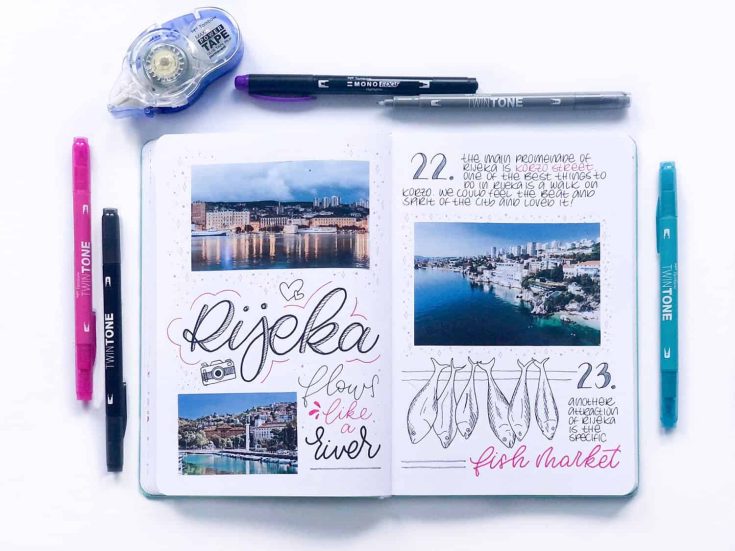 POWER
TAPE
MONO
TWINTONE
TWINTONE
TWINTONE
TWINTONE
Rijeka
flows
like
a
river
22. the main promenade of
Rijeka is Korzo Street
one of the best things to
do in Rijeka is a walk on
Korzo. We could feel the beat and
spirit of the city and loved it!
23.
another
attraction
of Rijeka
is the
specific
fish market